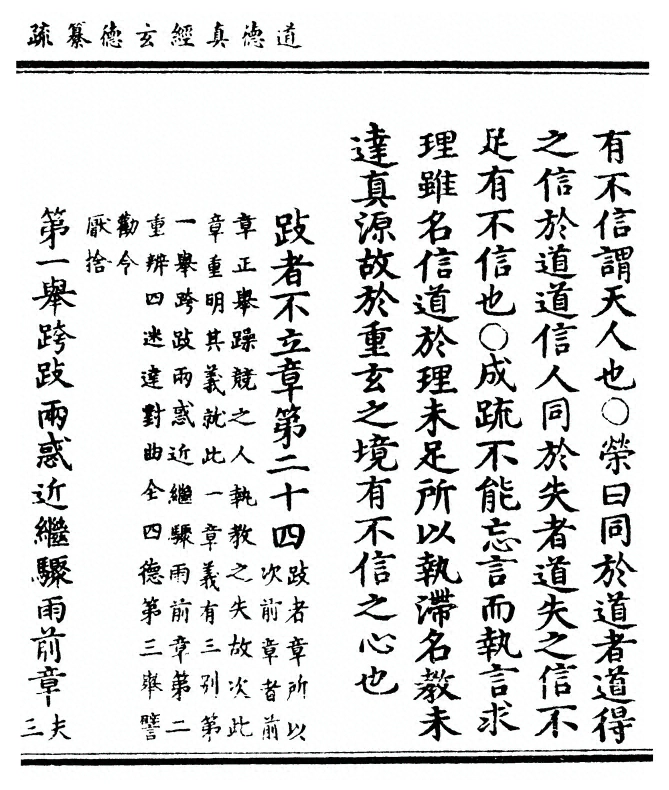 道德真經玄德纂疏
有不信謂天人也○榮曰同於道者道得
之信於道道信人同於失者道失之信不
足有不信也○成疏不能忘言而執言求
理雖名信道於理未足所以執滯名教未
達真源故於重玄之境有不信之心也
跂者不立章第二十四跂者章所以
次前章者前
章正舉躁競之人執教之失故次此
章重明其義就此一章義有三別第
一舉跨跂兩惑近繼驟雨前章第二
重辨四迷達對曲全四德第三舉譬
勸令
厭捨
第一舉跨跂兩惑近繼驟雨前章
夫三